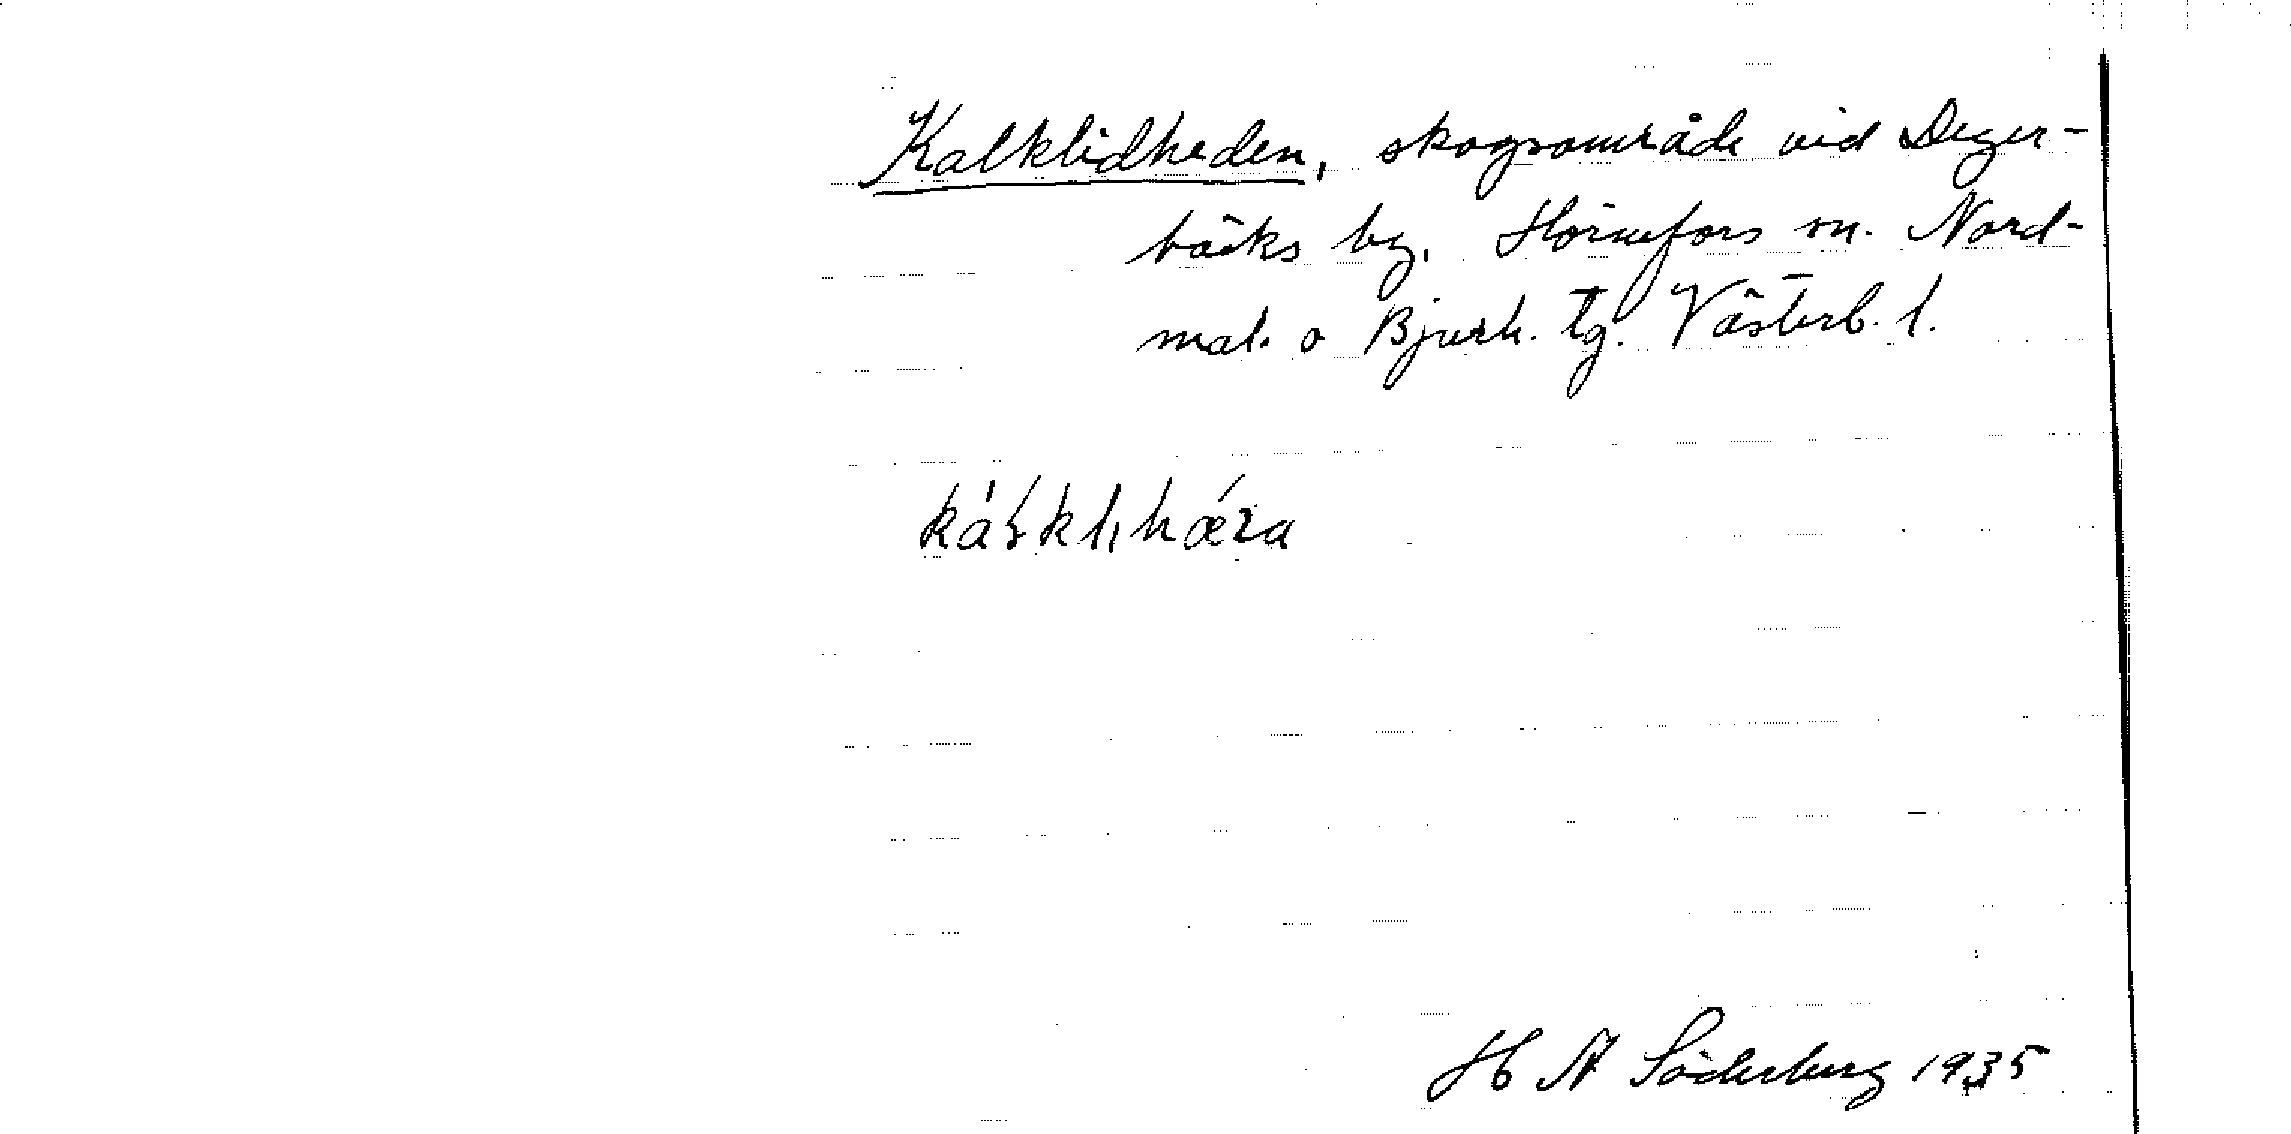 Kalklidheden, skogsområde vid Deger-
bäcks by. Hörnefors sn. Nord-
mal. o Bjurh. tg. Västerb. l.
H A Söderberg 1935